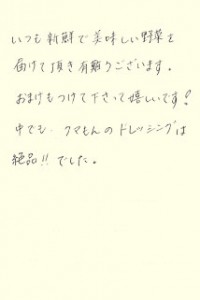 いつも新鮮で美味しい野菜を
届けて頂き有難うございます。
おまけもつけて下さって嬉しいです!
中でも、クマもんのドレッシングは
絶品!!でした。